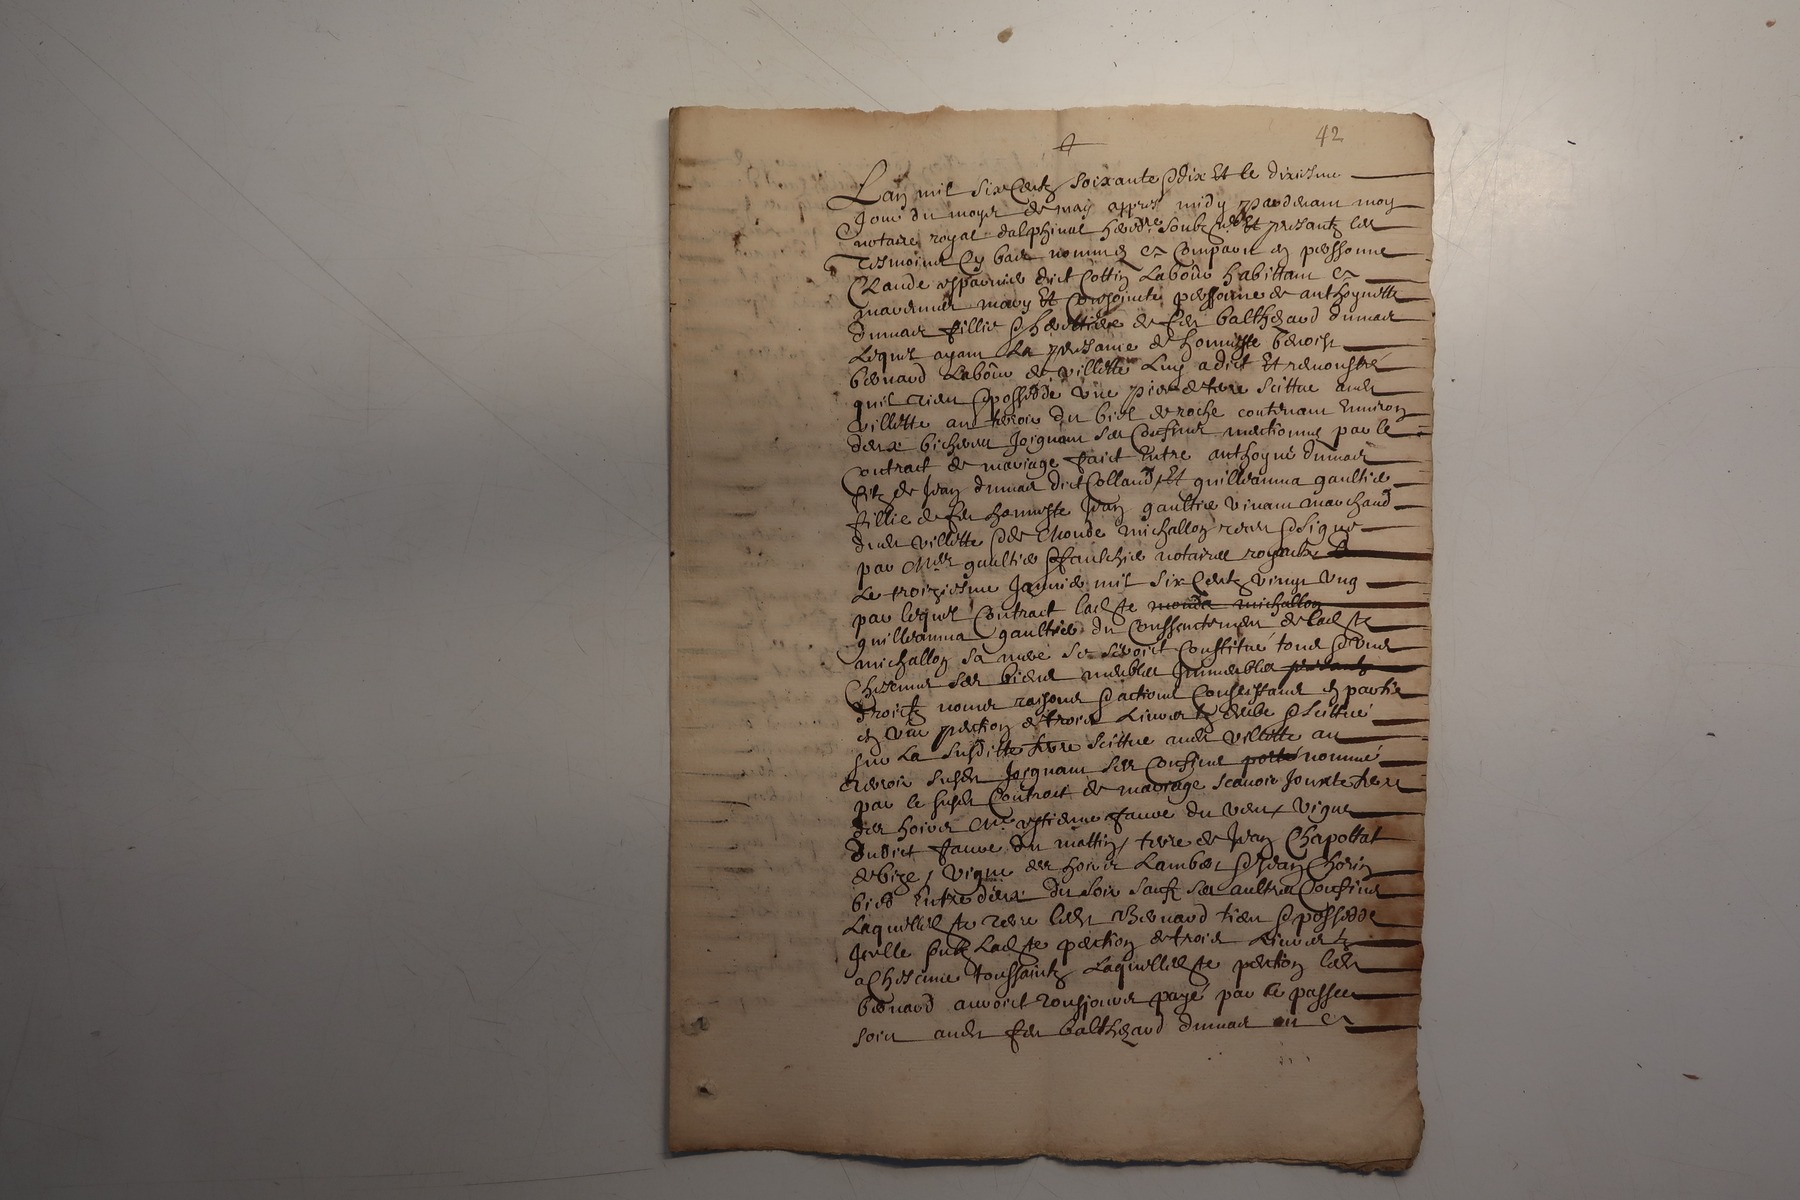 42
Lan mil six Centz soixante & dix Et le dixiesme
Jour du moys de may appres midy pardevant moy
notaire royal dalphinal hered.re soubz.né Et presantz les
Tesmoins Cy bas nommez Comparu en personne
Claude dict Cottin Labour habittant
mary Et Conjointe personne de anthoynette
dumas fillie & herettiere de feu balthezard dumas
Lequel ayant La presance de honneste benoist
bernard Labour de villette Luy a dict Et remonstré
quil tient & possedde une piece de terre scittue audt
villette au terroir du biel de roche contenant Environ
deux bicherees Joignant ses Confins mentionnes par le
contract de mariage faict Entre anthoyne dumas
filz de Jean dumas dict Colland, Et guilleauma gaultier
fillie de feu honneste Jean gaultier vivant marchand
dudt villette & de Monde michallon receu & signé
par Mes gaultier & notaires royaulx
Le troiziesme Janvier mil six Centz vingt ung
par lequel Contract ladte monde michallon
guilleauma gaultier du Conssentement de ladte
michallon sa mere se seroict Constitué tous & ungs
Chescuns ses biens meubles Jmmeubles presantz
droictz noms raisons & actions Consistant en partie
en une pention de trois Livres & scittué
sur La susditte terre scittue audt villette au
terroir susdt Joignant ses Confins porté nommé
par le susdt Contrait de mariage scavoir Jouxte terre
des hoirs Me estienne faure du vent, vigne
dudict faure du mattin, terre de Jean Chapottat
de bize, vigne des hoirs Lambert & Jean Chorin
bief Entre deux du soir sauf ses aultres Confins
Laquelle dte terre ledt Bernard tient & possedde
Jcelle soubz Ladte pention de trois Livres
a Chescune toussaintz Laquelle dte pention ledt
bernard auroict tousjours payé par le passee
soit audt feu balthezard dumas ou